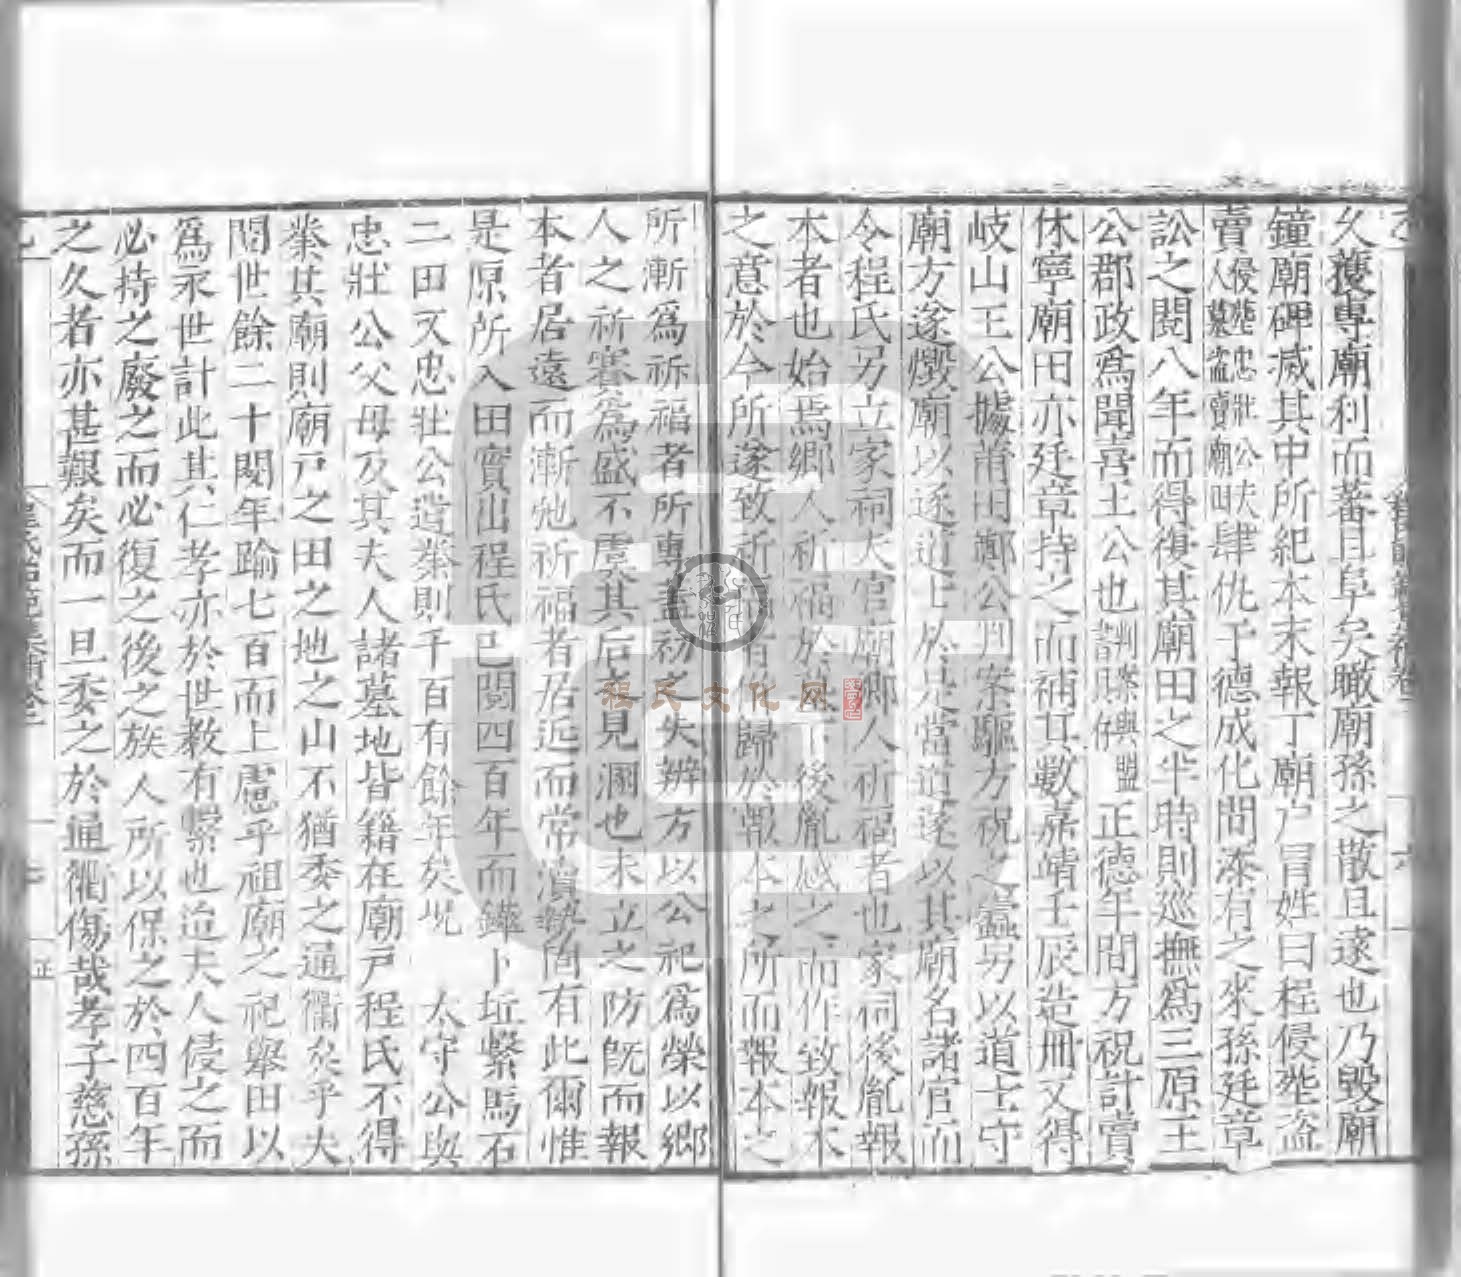 久擭專廟利而蕃且阜矣瞰廟孫之散且遠也乃毀廟
鐘廟碑滅其中所紀本末報丁廟户冒姓曰程侵塋盗
賣侵塋忠壯公大人墓盗賣廟田肆仇于德成化間泰有之來孫廷章
訟之閱八年而得復其廟田之半時則巡撫爲三原王
公郡政爲聞喜王公也正德年間方祝計賞
休寧廟田亦廷章持之而補廿數嘉靖壬辰造冊又得
岐山王公據莆田鄭公案驅方祝之蠹另以道士守
廟方遂燬廟以逐道士於是當道遂以其廟名諸官而
令程氏另立家祠夫官廟鄉人祈福者也家祠後胤報
本者也始焉鄉人祈福於後胤感之而作致報本
之意於今所遂致祈有歸於報本之所而報本之
所漸爲祈福者所專盖初之失辨方以公祀爲榮以鄉
人之祈賽爲盛不虞其后之見溷也未立之防旣而報
本者居遠而漸弛祈福者居近而常瀆勢固有此爾惟
是原所入田實出程氏已閱四百年而鏵卜坵繫馬石
二田又忠壯公遺業則千百有餘年矣况　太守公與
忠壯公父母及其夫人諸墓地皆籍在廟戸程氏不得
業其廟則廟戸之田之地之山不猶委之通衢矣乎夫
閱世餘二十閱年踰七百而上慮乎祖廟之祀舉田以
爲永世計此其仁孝亦於世教有繫也迨夫人侵之而
必持之廢之而必復之後之族人所以保之於四百年
之久者亦甚艱矣而一旦委之於通衢傷哉孝子慈孫
程氏文化网